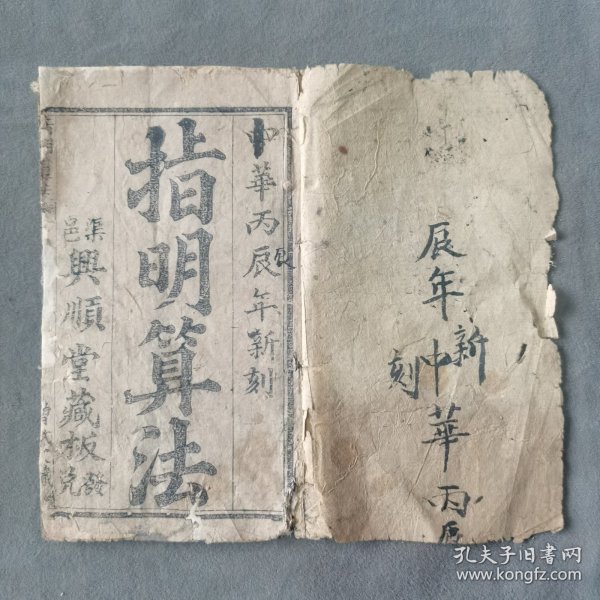 中華丙辰年新刻
指明算法
渠邑興順堂藏板
發兌
辰年新
刻中華丙辰
孔夫子旧书网
www.kongfz.com